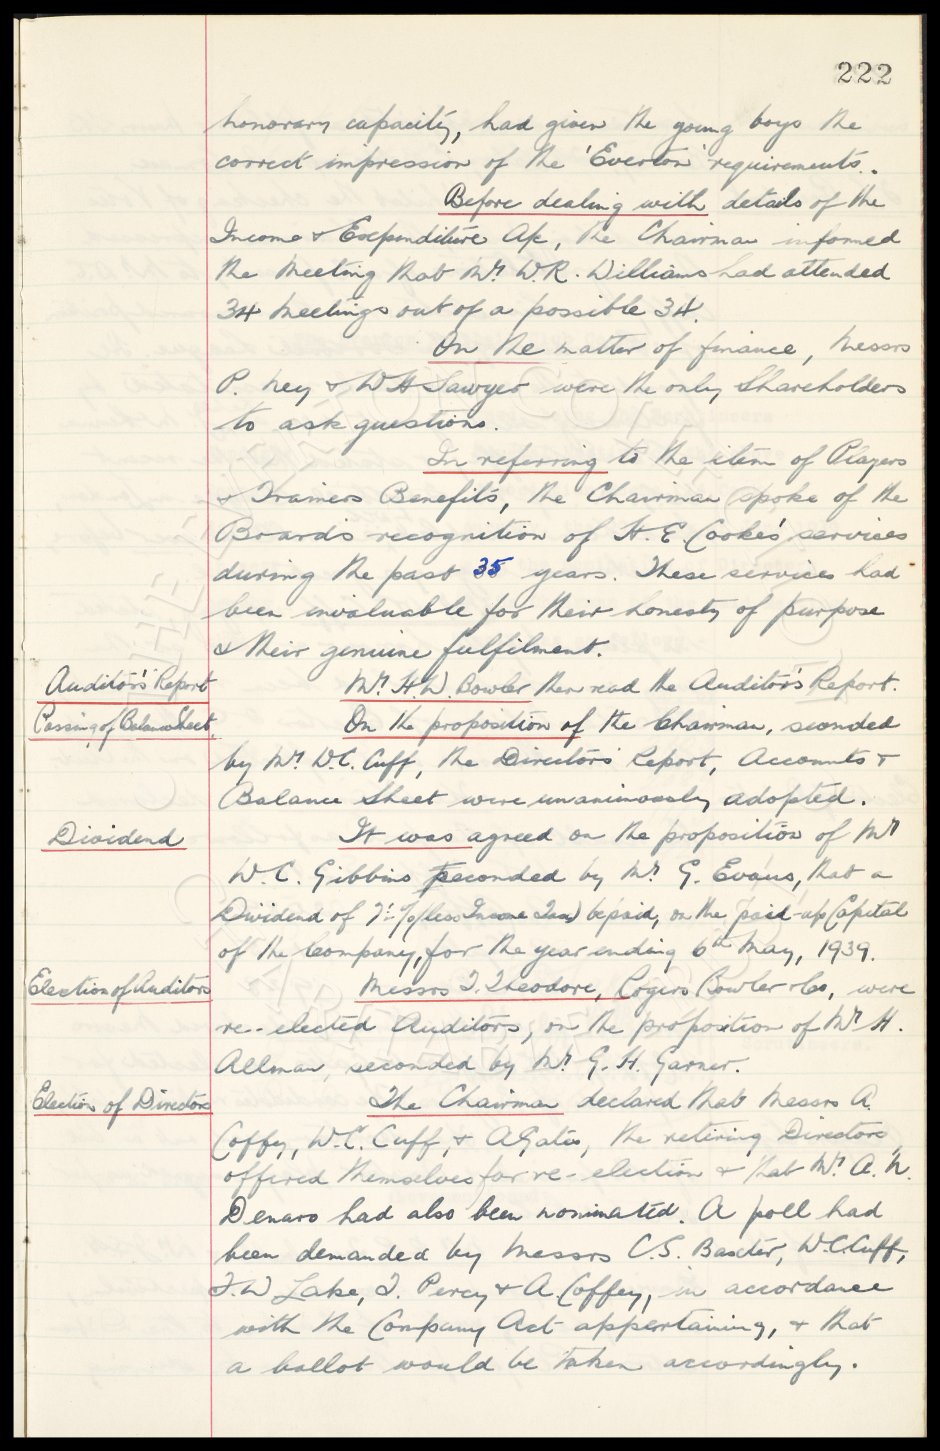 222
honorary capacity, had given the young boys the
correct impression of the 'Everton' requirements.
Before dealing with details of the
Income & Expenditure A/c, the Chairman informed
the meeting that Mr. W.R. Williams had attended
34 meetings out of a possible 34.
On the matter of finance, Messrs
P. Ney & W H Sawyer were the only Shareholders
to ask questions.
In referring to the item of Players
& Trainers Benefits, the Chairman spoke of the
Board's recognition of H. E. Cookes' services
during the past 35 years. These services had
been invaluable for their honesty of purpose
& their genuine fulfilment.
Auditor's Report
Mr. H.W. Bowler then read the Auditor's Report.
Passing of Balance Sheet.
On the proposition of the Chairman, seconded
by Mr. W.C. Cuff, the Directors Report, Accounts &
Balance Sheet were unanimously adopted.
Dividend
It was agreed on the proposition of Mr
W. C. Gibbins seconded by Mr. G. Evans, that a
Dividend of 7½% (less Income Tax) be paid, on the paid-up Capital
of the Company, for the year ending 6th May, 1939.
Election of Auditors
Messrs T. Theodore, Rogers Bowler & Co, were
re-elected Auditors, on the proposition of Mr H.
Allman, seconded by Mr. G. H. Garner.
Election of Directors
The Chairman declared that Messrs A.
Coffey, W.C. Cuff, & A Gates, the retiring Directors,
offered themselves for re-election & that Mr. A. N.
Denaro had also been nominated. A poll had
been demanded by Messrs C.S. Baxter, W.C. Cuff,
F.W Lake, T. Percy & A. Coffey, in accordance
with the Company Act appertaining, & that
a ballot would be taken accordingly.